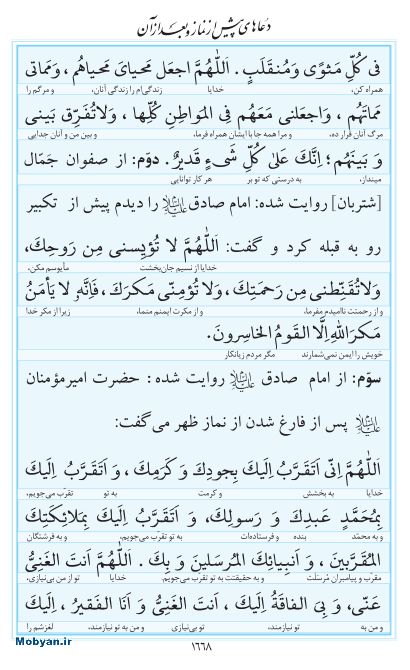 دعاهای پیش از نماز و بعد از آن
فی کُلِّ مَثویً وَمُنقَلَبٍ . اَللّٰهُمَّ اجعَل مَحیایَ مَحیاهُم ، وَمَماتی
همراه کن، خدایا زندگی‌ام را زندگی آنان، و مرگم را
مَماتَهُم ، وَاجعَلنی مَعَهُم فِی المَواطِنِ کُلِّها ، وَلاتُفَرِّق بَینی
مرگ آنان قرار ده، و مرا همه جا با ایشان همراه فرما، و بین من و آنان جدایی
وَ بَینَهُم ؛ اِنَّکَ عَلیٰ کُلِّ شَیءٍ قَدیرٌ. دوّم: از صفوان جَمّال
میندازـ به درستی که تو بر هر کار توانایی
[شتربان] روایت شده: امام صادق علیه‌السلام را دیدم پیش از تکبیر
رو به قبله کرد و گفت: اَللّٰهُمَّ لا تُؤیِسنی مِن رَوحِکَ،
خدایا از نسیم جان‌بخشت مأیوسم مکن،
وَلاتُقَنِّطنی مِن رَحمَتِکَ، وَلا تُؤمِنّی مَکرَکَ، فَاِنَّهُ لا یَأمَنُ
و از رحمتت ناامیدم مفرما، و از مکرت ایمنم منما، زیرا از مکر خدا
مَکرَ اللهِ اِلَّا القَومُ الخاسِرونَ.
خویش را ایمن نمی‌شمارند مگر مردم زیانکار
سوّم: از امام صادق علیه‌السلام روایت شده : حضرت امیرمؤمنان
علیه‌السلام پس از فارغ شدن از نماز ظهر می‌گفت:
اَللّٰهُمَّ اِنّی اَتَقَرَّبُ اِلَیکَ بِجودِکَ وَ کَرَمِکَ ، وَ اَتَقَرَّبُ اِلَیکَ
خدایا به بخشش و کرمت به تو تقرّب می‌جویم،
بِمُحَمَّدٍ عَبدِکَ وَ رَسولِکَ، وَ اَتَقَرَّبُ اِلَیکَ بِمَلائِکَتِکَ
و به محمّد بنده و فرستاده‌ات به تو تقرب می‌جویم، و به فرشتگان
المُقَرَّبینَ ، وَ اَنبِیائِکَ المُرسَلینَ وَ بِکَ . اَللّٰهُمَّ اَنتَ الغَنِیُّ
مقرّب و پیامبران مُرسَلت و به حقیقتت به تو تقرّب می‌جویم. خدایا تو از من بی‌نیازی،
عَنّی، وَ بِیَ الفاقَةُ اِلَیکَ ، اَنتَ الغَنِیُّ وَ اَنَا الفَقیرُ ، اِلَیکَ
و من به تو نیازمند، تو بی‌نیازی و من به تو نیازمند، لغزشم را
۱۶۶۸
Mobyan.ir